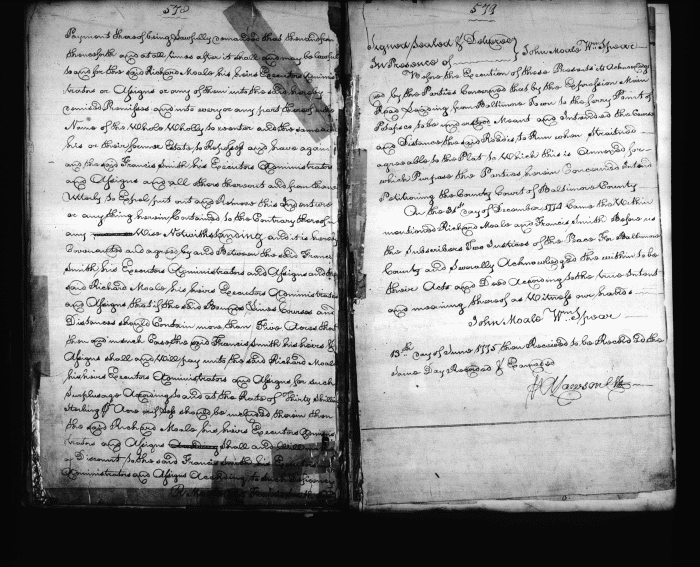 572
Payment thereof being Lawfully remaind that then and from
thenceforth and at all times after it shall and may be Lawful
to and for the said Richard Moale his heirs Executors Admini
trators or Assigns or any of them into the said hereby
remised Premisses and into every or any part thereof in the
Name of the Whole Wholly to reenter and the same as in
his or their former Estate to Reposess and have again
and the said Francis Smith his Executors Administrators
and Assigns and all others thereout and from thence
Utterly to Expel put out and Remove this Indenture
or any thing herein Contained to the Contrary thereof in
any Wise Notwithstanding and it is hereby
Covenanted and agreed by and Between the said Francis
Smith his Executors Administrators and Assigns and the
said Richard Moale his heirs Executors Administrators
and Assigns that if the said Bounds Lines Courses and
Distances should Contain more than Five Acres that
then and in such Case the said Francis Smith his heirs &
Assigns shall and Will pay unto the said Richard Moale
his heirs Executors Administrators and Assigns for such
Surplusage According to and at the Rate of Thirty Shillings
Sterling Acre should be included therein then
the said Richard Moale his heirs Executors Adminis
trators and Assigns shall and will
Discount to the said Francis Smith his Executors
Administrators and Assigns According to such deficiency
R. Moale Francis Smith
573
Signed Sealed & Delivered
In Presence of John Moale Wm Spear
Before the Execution of these Presents its Acknowledg
ed by the Parties Concerned that by the Expression Main
Road Leading from Baltimore Town to the ferry Point of
Potapsco to be understood Meant and Intended the Course
and Distance the said Road is to Run when Straitened
agreeable to the Plat to Which this is Annexed for
which Purpose the Parties herein Concerned Intend
Petitioning the County Court of Baltimore County
On the 31st day of December 1774 Came the Within
mentioned Richard Moale and Francis Smith Before us
the Subscribers Two Justices of the Peace For Baltimore
County and Severally Acknowledged the within to be
their Acts and Deed According to the true Intent
and meaning thereof as Witness our hands
John Moale Wm Spear
13th day of June 1775 then Received to be Recorded the
same Day Recorded & Examined
A Lawson Clk